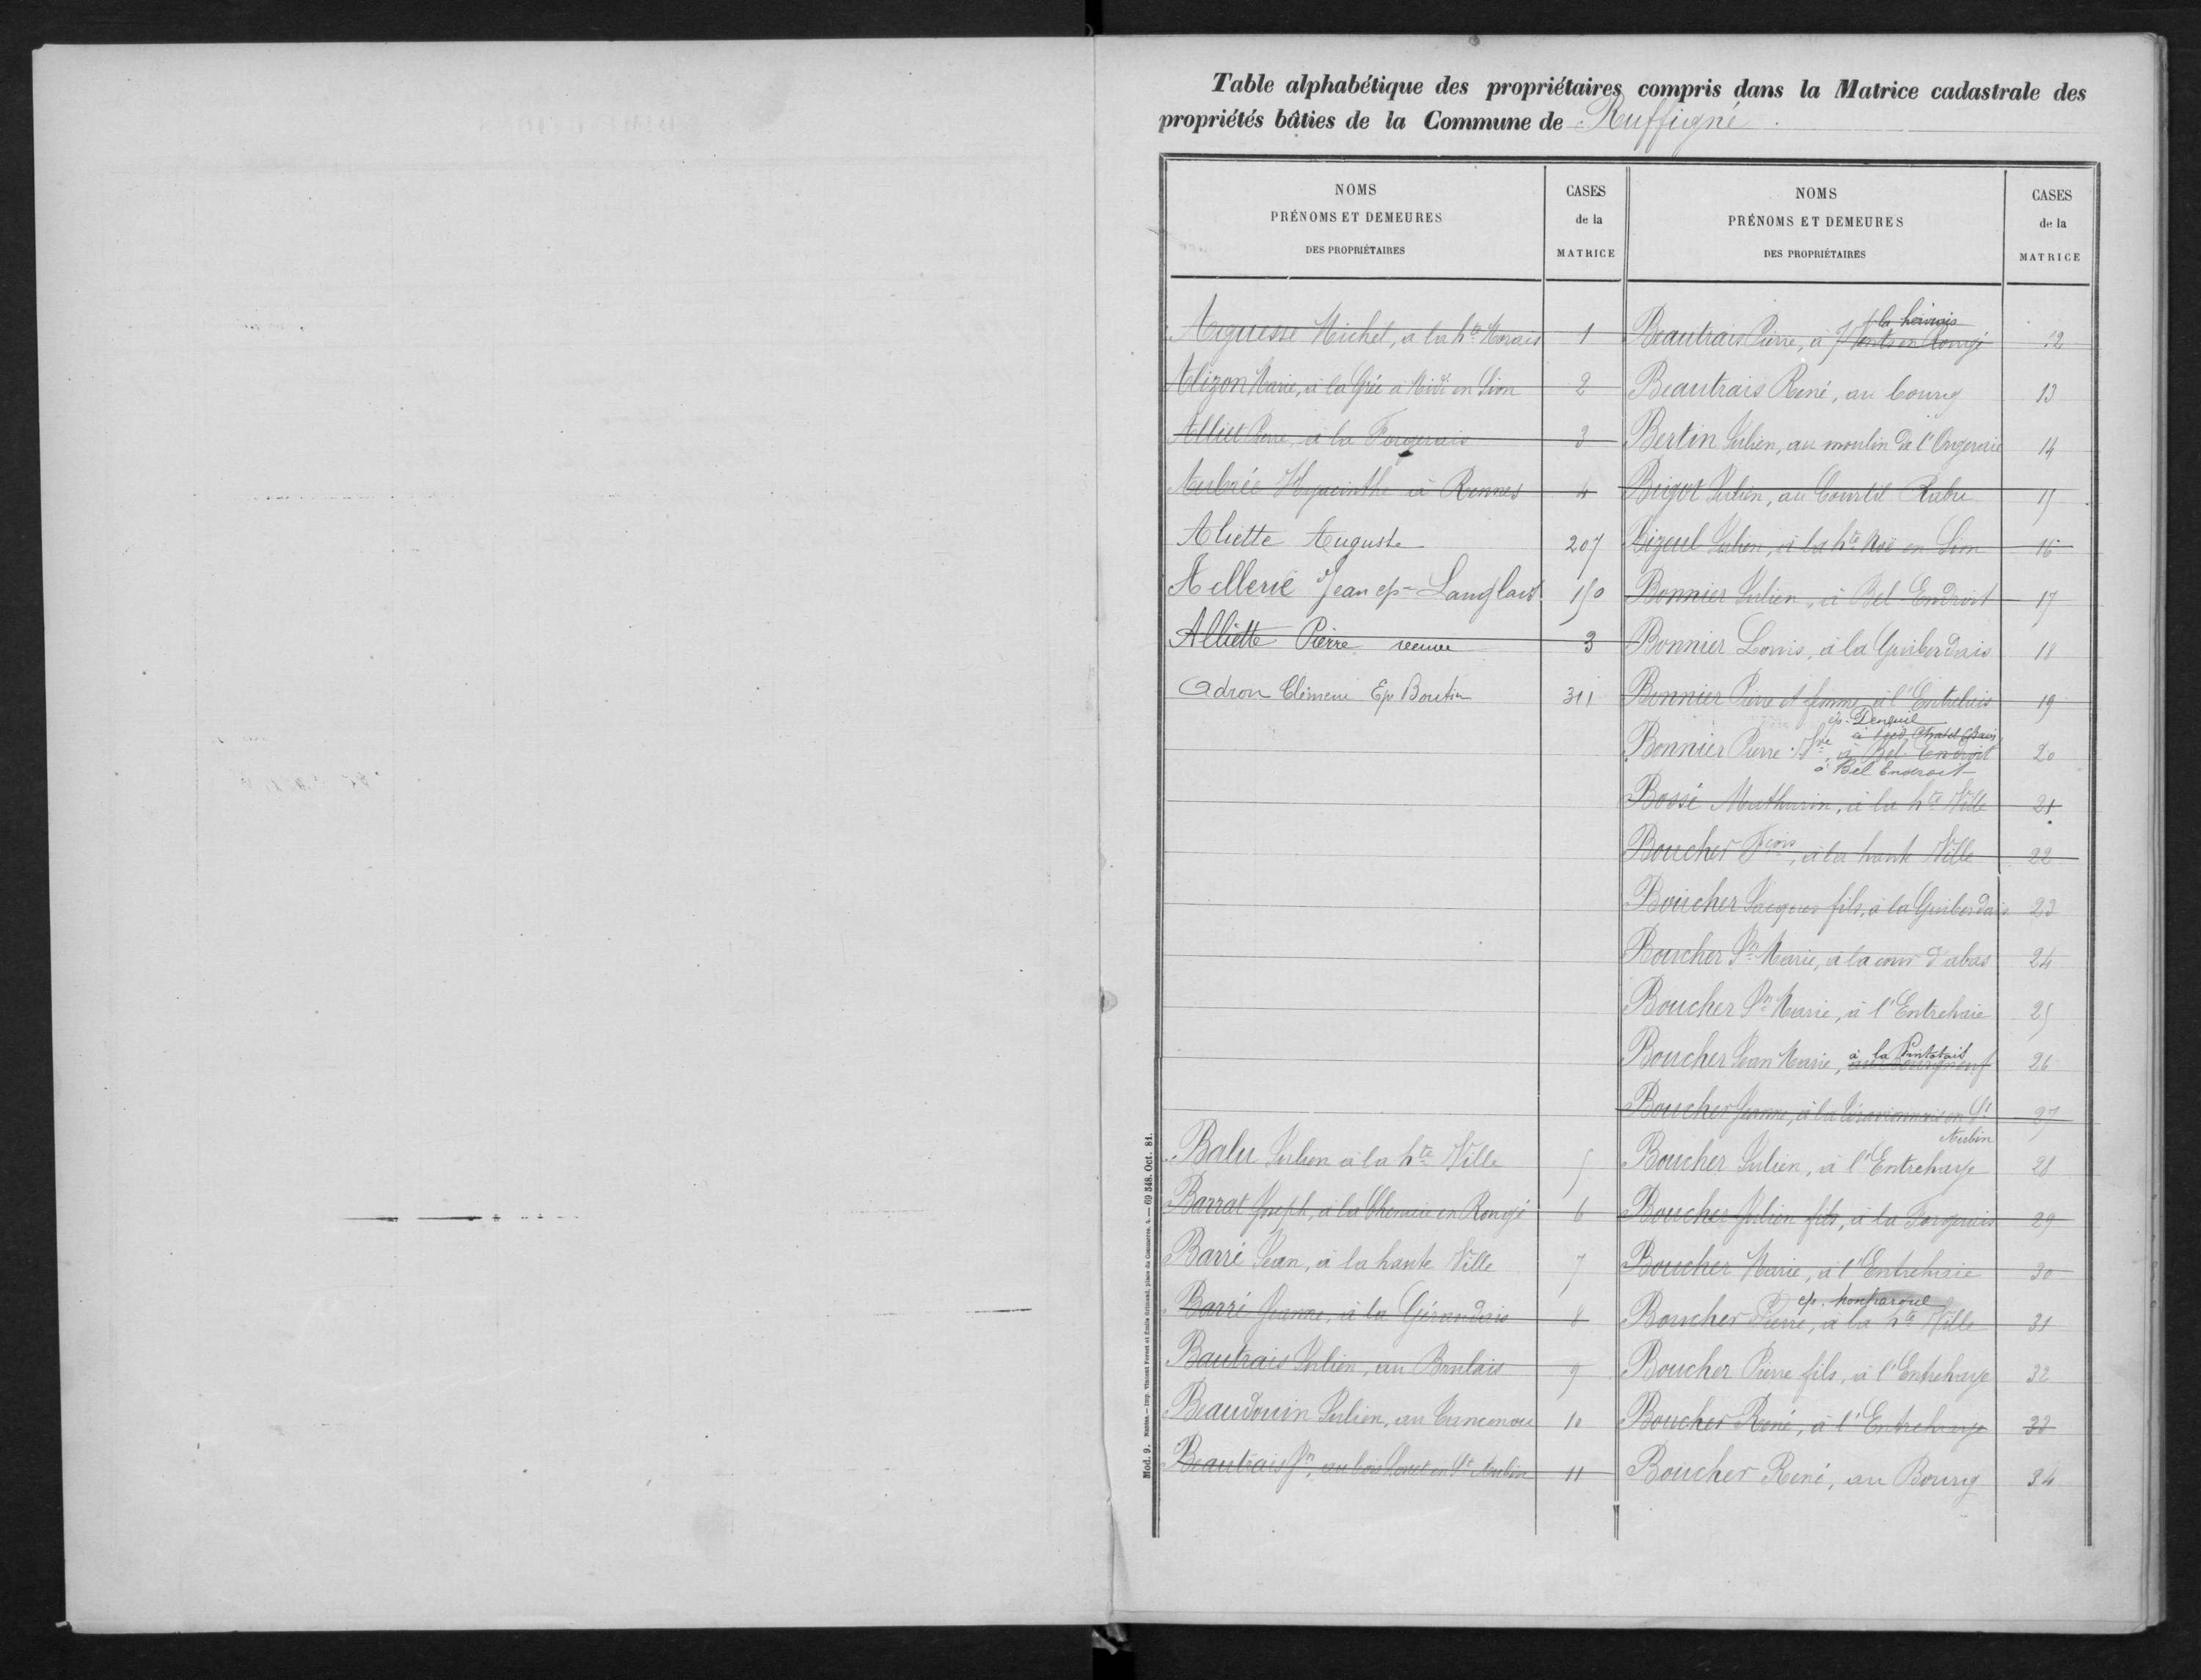 Table alphabétique des propriétaires compris dans la Matrice cadastrale des
propriétés bâties de la Commune de Ruffigné.
NOMS
PRÉNOMS ET DEMEURES
DES PROPRIÉTAIRES
CASES
de la
MATRICE
Aguesse Michel, à la hte Marais 1
Alizon Marie, à la Grée à Midi en Sion 2
Alliet Pierre, à la Forgerais 3
Aubrée Hyacinthe à Rennes 4
Aliette Auguste 207
Aellerie Jean ep- Langlais 150
Alliette Pierre veuve 3
Adron Clémence Ep Boutin 311
Balu Julien à la hte Ville 5
Barrat Joseph, à la en Rougé 6
Barré Jean, à la haute Ville 7
Barré Jeanne, à la Géraudais 8
Bautrais Julien, au Brulais 9
Beaudouin Julien, au 10
Beautrais Jn, au bois en St Aubin 11
NOMS
PRÉNOMS ET DEMEURES
DES PROPRIÉTAIRES
CASES
de la
MATRICE
la
Beautrais Pierre, à en Rougé 12
Beautrais René, au bourg 13
Bertin Julien, au moulin de l'Ongeraie 14
Bigot Julien, au Courtil Rabu 15
Bizeul Julien, à la hte Noë en Sion 16
Bonnier Julien, à Bel Endroit 17
Bonnier Louis, à la Guibordais 18
Bonnier Pierre et femme, à 19
ep.
Bonnier Pierre à Bel Endroit 20
à Bel Endroit
Bossé Mathurin, à la hte Ville 21
Boucher Fçois, à la haute Ville 22
Boucher Jacques fils, à la Guibordais 23
Boucher Jn Marie, à la cour d'abas 24
Boucher Jn Marie, à l'Entrehaie 25
à la Pintotais
Boucher Jean Marie, au Bourgneuf 26
Boucher Jeanne, à la en St 27
Aubin
Boucher Julien, à l'Entrehaye 28
Boucher Julien fils, à la Forgerais 29
Boucher Marie, à l'Entrehaie 30
ep.
Boucher Pierre, à la hte Ville 31
Boucher Pierre fils, à l'Entrehaye 32
Boucher René, à l'Entrehaye 33
Boucher René, au Bourg 34
Mod. 9. Nantes.— Imp. Vincent Forest et Émile Grimaud, place du Commerce, 4. — 69 348. Oct. 81.